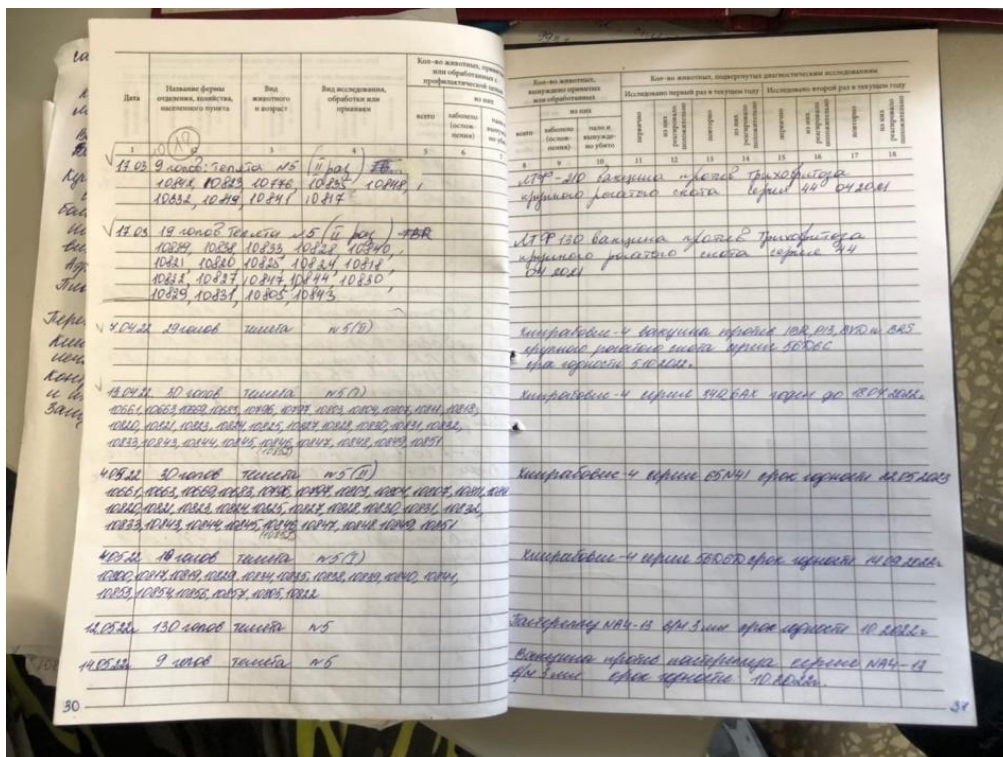 Дата
Название фермы отделения, хозяйства, населенного пункта
Вид животного и возраст
Вид исследования, обработки или прививки
Кол-во животных, привитых или обработанных с профилактической целью
из них
всего
заболело (осложнения)
1
3
4
5
6
17.03 9 голов: телята №5 (II раз)
10842, 10823, 10776, 10835, 10848,
10832, 10849, 10841 10817
17.03 19 голов телята №5 (II раз)
10819, 10838, 10833 10828, 10840,
10821 10820 10825, 10824, 10818,
10822, 10827, 10847, 10844, 10830
10829, 10831, 10805, 10843
7.04.22 29 голов телята №5 (II)
13.04.22 30 голов телята №5 (I)
10661, 10663, 10669, 10683, 10796, 10797, 10803, 10804, 10807, 10811, 10818,
10820, 10821, 10823, 10824, 10825, 10827, 10828, 10830, 10831, 10832,
10833, 10843, 10844, 10845, 10846, 10847, 10848, 10849, 10851
(10852)
4.05.22 30 голов телята №5 (II)
10661, 10663, 10669, 10683, 10796, 10797, 10803, 10804, 10807, 10811, 10818
10820, 10821, 10823, 10824, 10825, 10827, 10828, 10830, 10831, 10832,
10833, 10843, 10844, 10845, 10846, 10847, 10848, 10849, 10851
(10852)
4.05.22 16 голов телята №5 (I)
10800, 10817, 10819, 10829, 10834, 10835, 10838, 10839, 10840, 10841,
10853, 10854, 10856, 10857, 10805, 10822
12.05.22г 130 голов телята №5
14.05.22г 9 голов телята №6
30
Кол-во животных, вынужденно привитых или обработанных
Кол-во животных, подвергнутых диагностическим исследованиям
из них
Исследовано первый раз в текущем году
Исследовано второй раз в текущем году
всего
заболело (осложнения)
пало и вынужденно убито
первично
из них реагировало положительно
повторно
из них реагировало положительно
первично
из них реагировало положительно
повторно
из них реагировало положительно
8
9
10
11
12
13
14
15
16
17
18
вакцина против трихофитоза
крупного рогатого скота серия 44 04 2021
ЛТФ 130 вакцина против трихофитоза
крупного рогатого скота серия 44
04 2021
Хипрабовис-4 вакцина против IBR, PI3, BVD и BRS
крупного рогатого скота серия 56D6C
срок годности 5.10.2022г
Хипрабовис-4 серия годен до 18.04.2022г
Хипрабовис-4 серии 65N41 срок годности 22.05.2023
Хипрабовис-4 серии 56D6D срок годности 14.09.2022г
NA4-13 в/м 3 мл срок годности 10.2022г
Вакцина против пастереллеза серии NA4-13
в/м 3 мл срок годности 10.2022г.